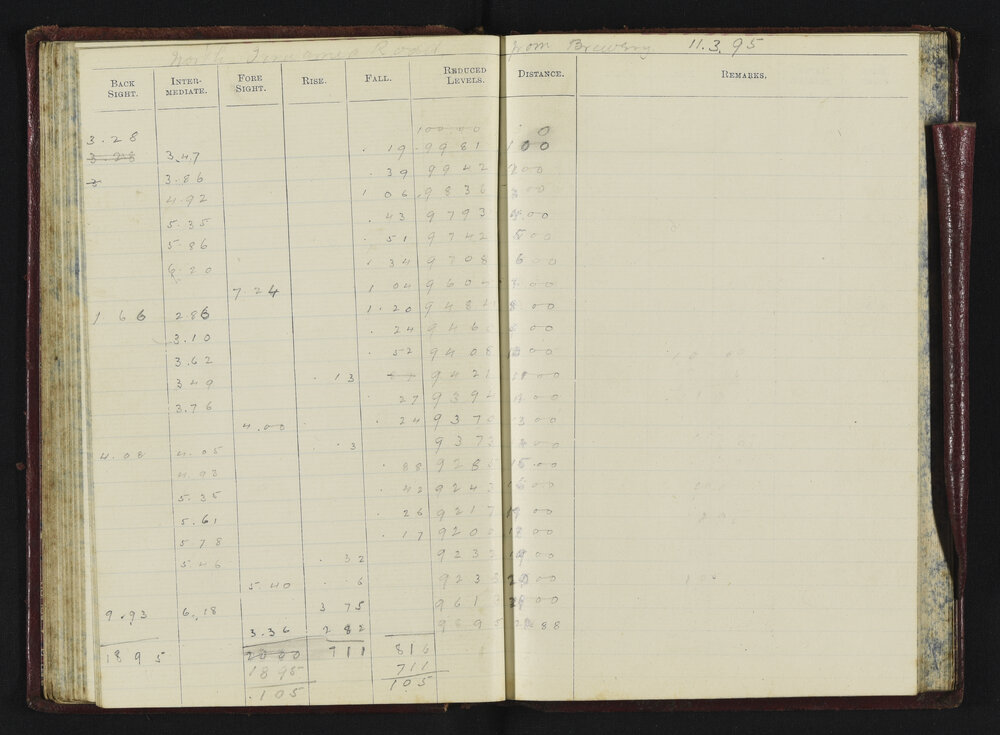 North Road from Brewery 11.3.95
BACK SIGHT. INTER-MEDIATE. FORE SIGHT. RISE. FALL. REDUCED LEVELS. DISTANCE. REMARKS.
3.28 100.00 0
3.28 3.47 .19 .9981 100
3 3.86 .39 9942 200
4.92 1 06 .9836 300
5.35 .43 9793 400
5.86 .51 9742 500
6.20 .34 9708 600
7.24 1 04 9604 00
1 66 2.86 1.20 9484 800
3.10 .24 946 00
3.62 .52 9408 00
3.49 .13 9421 00
3.76 .27 9394 00
4.00 .24 9370 00
4.08 4.05 .3 9373 00
4.93 .88 9285 1500
5.35 .42 9243 00
5.61 .26 9217 00
5.78 .17 9200 1800
5.46 .32 9232 1900
5.40 .6 923 00
9.93 6.18 3 75 961 00
3.36 282 9895 88
1895 2000 711 816
1895 711
.105 105